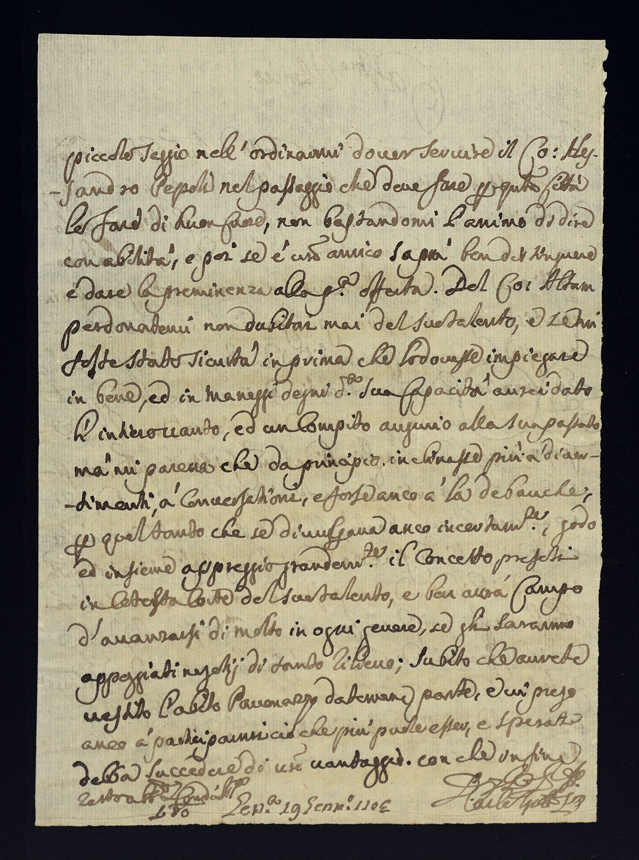 piccolo saggio nell'ordinarmi dover servire il Co: Ales-
-sandro Pepoli nel passaggio che deve fare p questa Città
lo farò di buon cuore, non bastandomi l'animo di dire
con abilità, e poi se è vro amico saprà ben distinguere
e dare la preminenza alla p.ª offerta. Del Co:
perdonatemi non dubitar mai del suo talento, e se mi
foste stato sicurtà in prima che lo dovesse impiegare
in bene, ed in maneggi degni d. sua capacità avrei dato
ed un compito augurio alla sua
mà mi pareva che da principio inclinasse più à diver-
-timenti, à conversationi, e forse anco à la debauche;
p quel tanto che se divulgava anco incertam.te, godo
ed insieme appreggio grandem.te il concetto
in cotesta Corte del suo talento, e ben avrà Campo
d'avanzarsi di molto in ogni genere, se gli saranno
appoggiati negotij di tanto rilievo; subito che avrete
vestito l'abito Pavonazzo datemene parte, e vi prego
anco à participarmi ciò che più puole esser, e
debba succedere di vro vantaggio. con che in fine
19 Genn.º